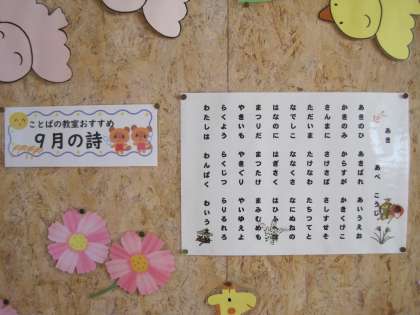 ことばの教室おすすめ
9月の詩
あき　あべ こうじ
あきのひ　あきばれ　あいうえお
かきのみ　からすが　かきくけこ
さんまに　さけさば　さしすせそ
ただいま　たけなわ　たちつてと
なでしこ　ななくさ　なにぬねの
はなのに　はぎさく　はひふへほ
まつりだ　まつたけ　まみむめも
やきいも　やきぐり　やいゆえよ
らくよう　らくじつ　らりるれろ
わたしは　わんぱく　わいう